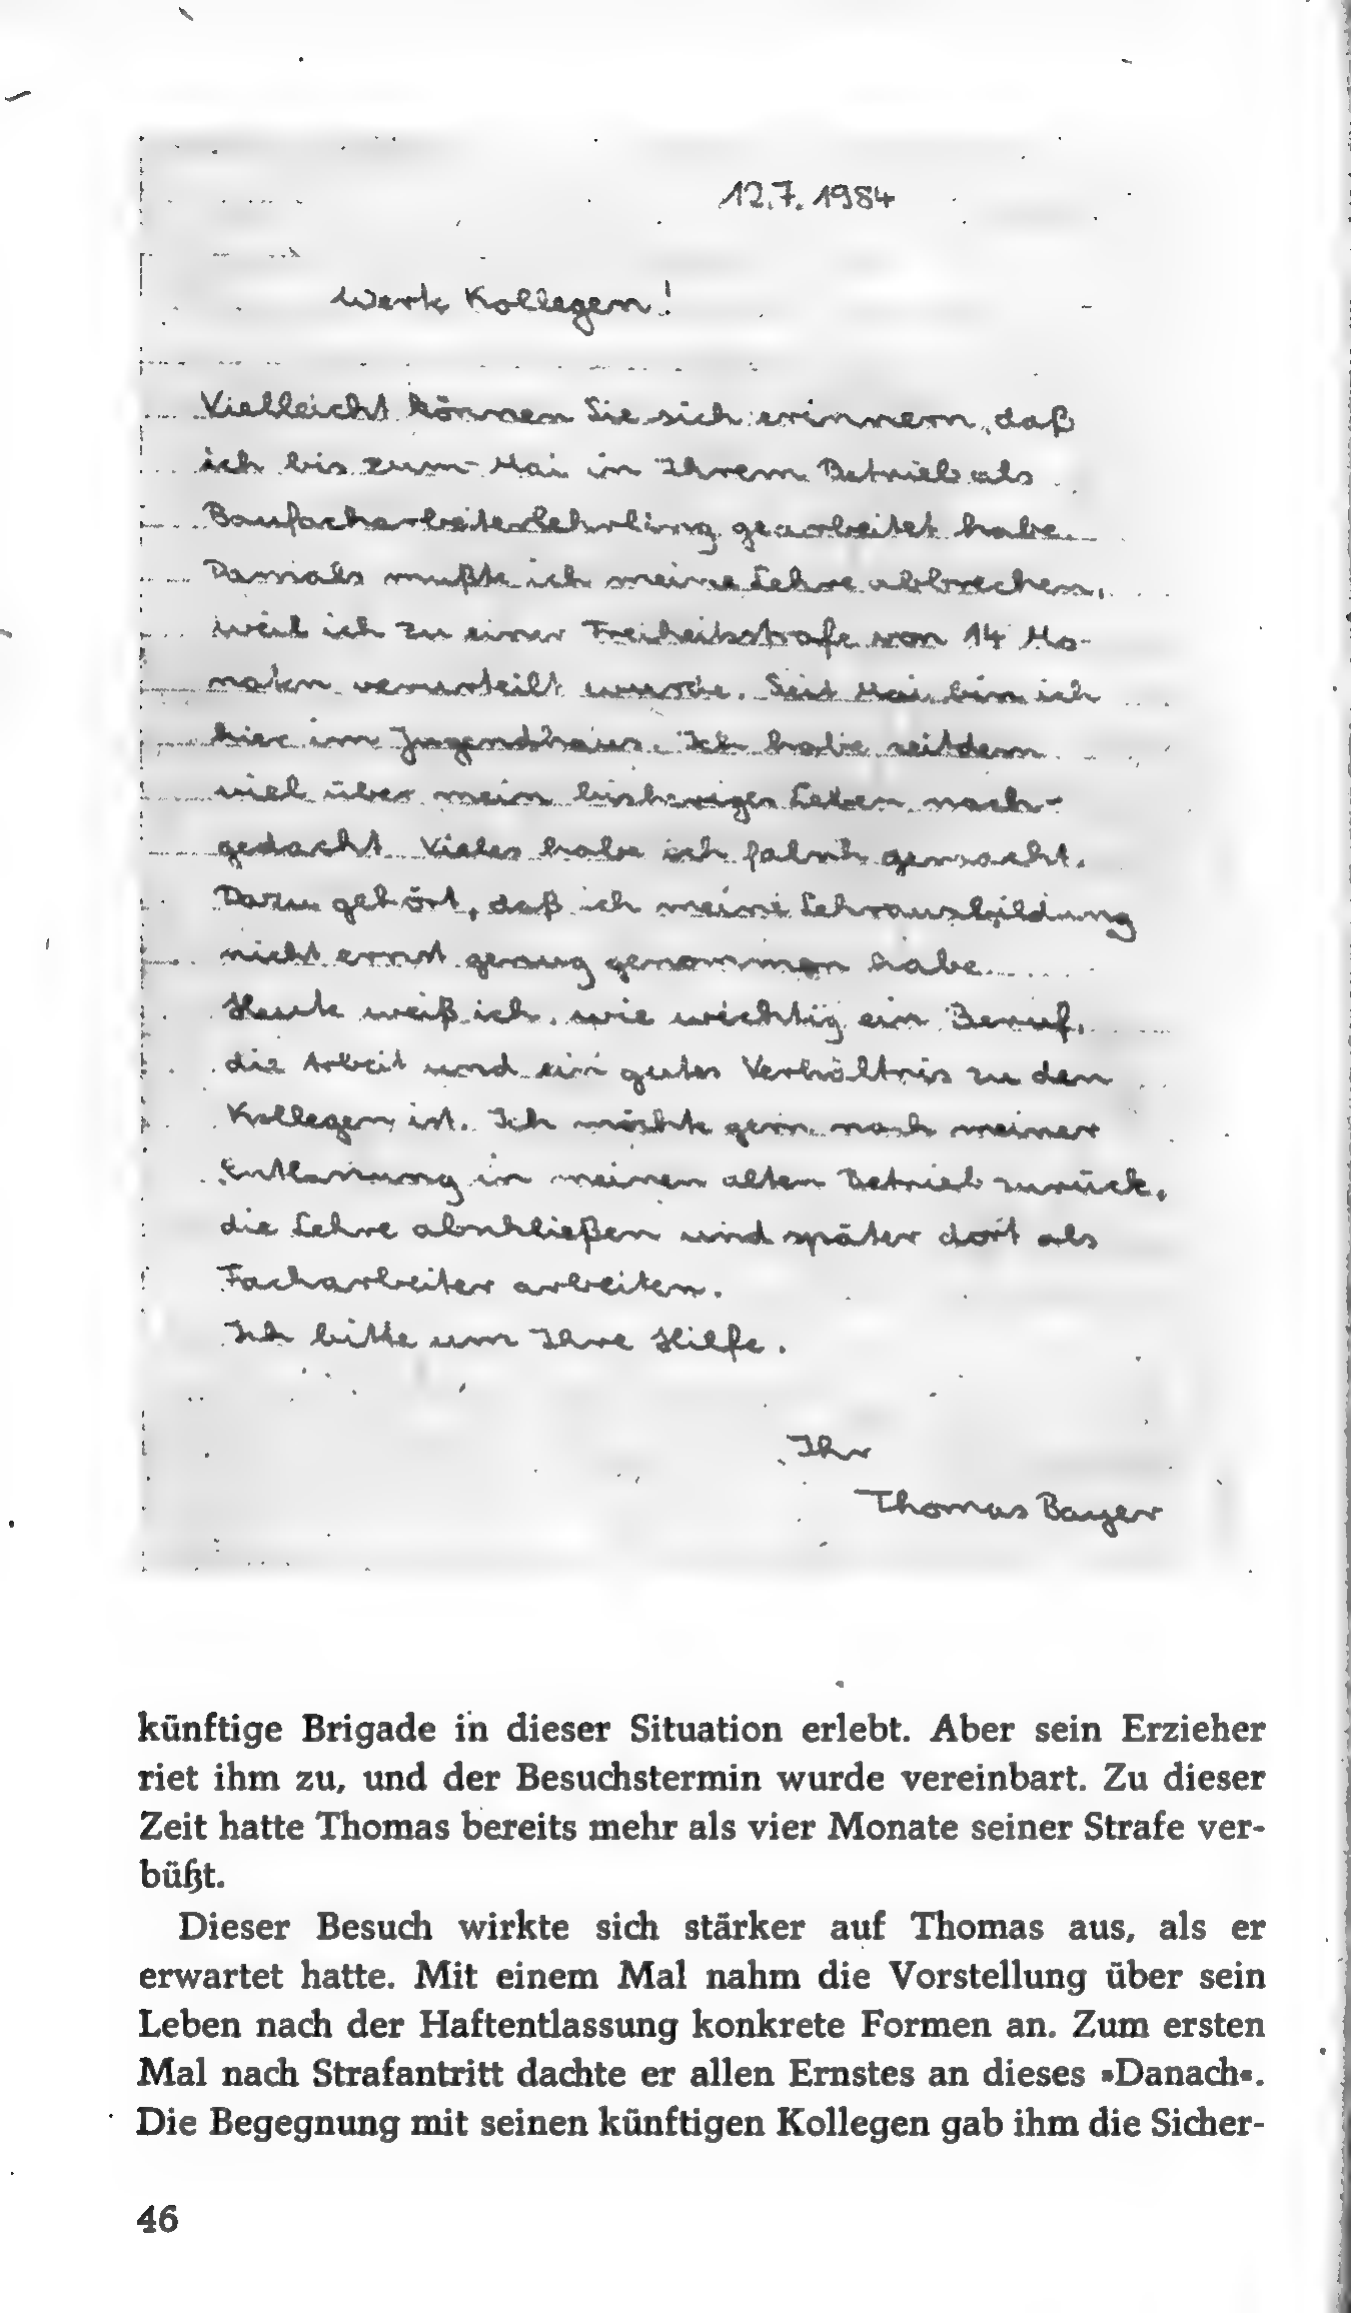 12.7.1984
Werte Kollegen!
Vielleicht können Sie sich erinnern, daß
ich bis zum Mai in Ihrem Betrieb als
Baufacharbeiterlehrling gearbeitet habe.
Damals mußte ich meine Lehre abbrechen,
weil ich zu einer Freiheitsstrafe von 14 Mo-
naten verurteilt wurde. Seit Mai bin ich
hier im Jugendhaus. Ich habe seitdem
viel über mein bisheriges Leben nach-
gedacht. Vieles habe ich falsch gemacht.
Dazu gehört, daß ich meine Lehrausbildung
nicht ernst genug genommen habe.
Heute weiß ich, wie wichtig ein Beruf,
die Arbeit und ein gutes Verhältnis zu den
Kollegen ist. Ich möchte gern nach meiner
Entlassung in meinen alten Betrieb zurück,
die Lehre abschließen und später dort als
Facharbeiter arbeiten.
Ich bitte um Ihre Hilfe.
Ihr
Thomas Bayer
künftige Brigade in dieser Situation erlebt. Aber sein Erzieher
riet ihm zu, und der Besuchstermin wurde vereinbart. Zu dieser
Zeit hatte Thomas bereits mehr als vier Monate seiner Strafe ver-
büßt.
Dieser Besuch wirkte sich stärker auf Thomas aus, als er
erwartet hatte. Mit einem Mal nahm die Vorstellung über sein
Leben nach der Haftentlassung konkrete Formen an. Zum ersten
Mal nach Strafantritt dachte er allen Ernstes an dieses »Danach«.
Die Begegnung mit seinen künftigen Kollegen gab ihm die Sicher-
46